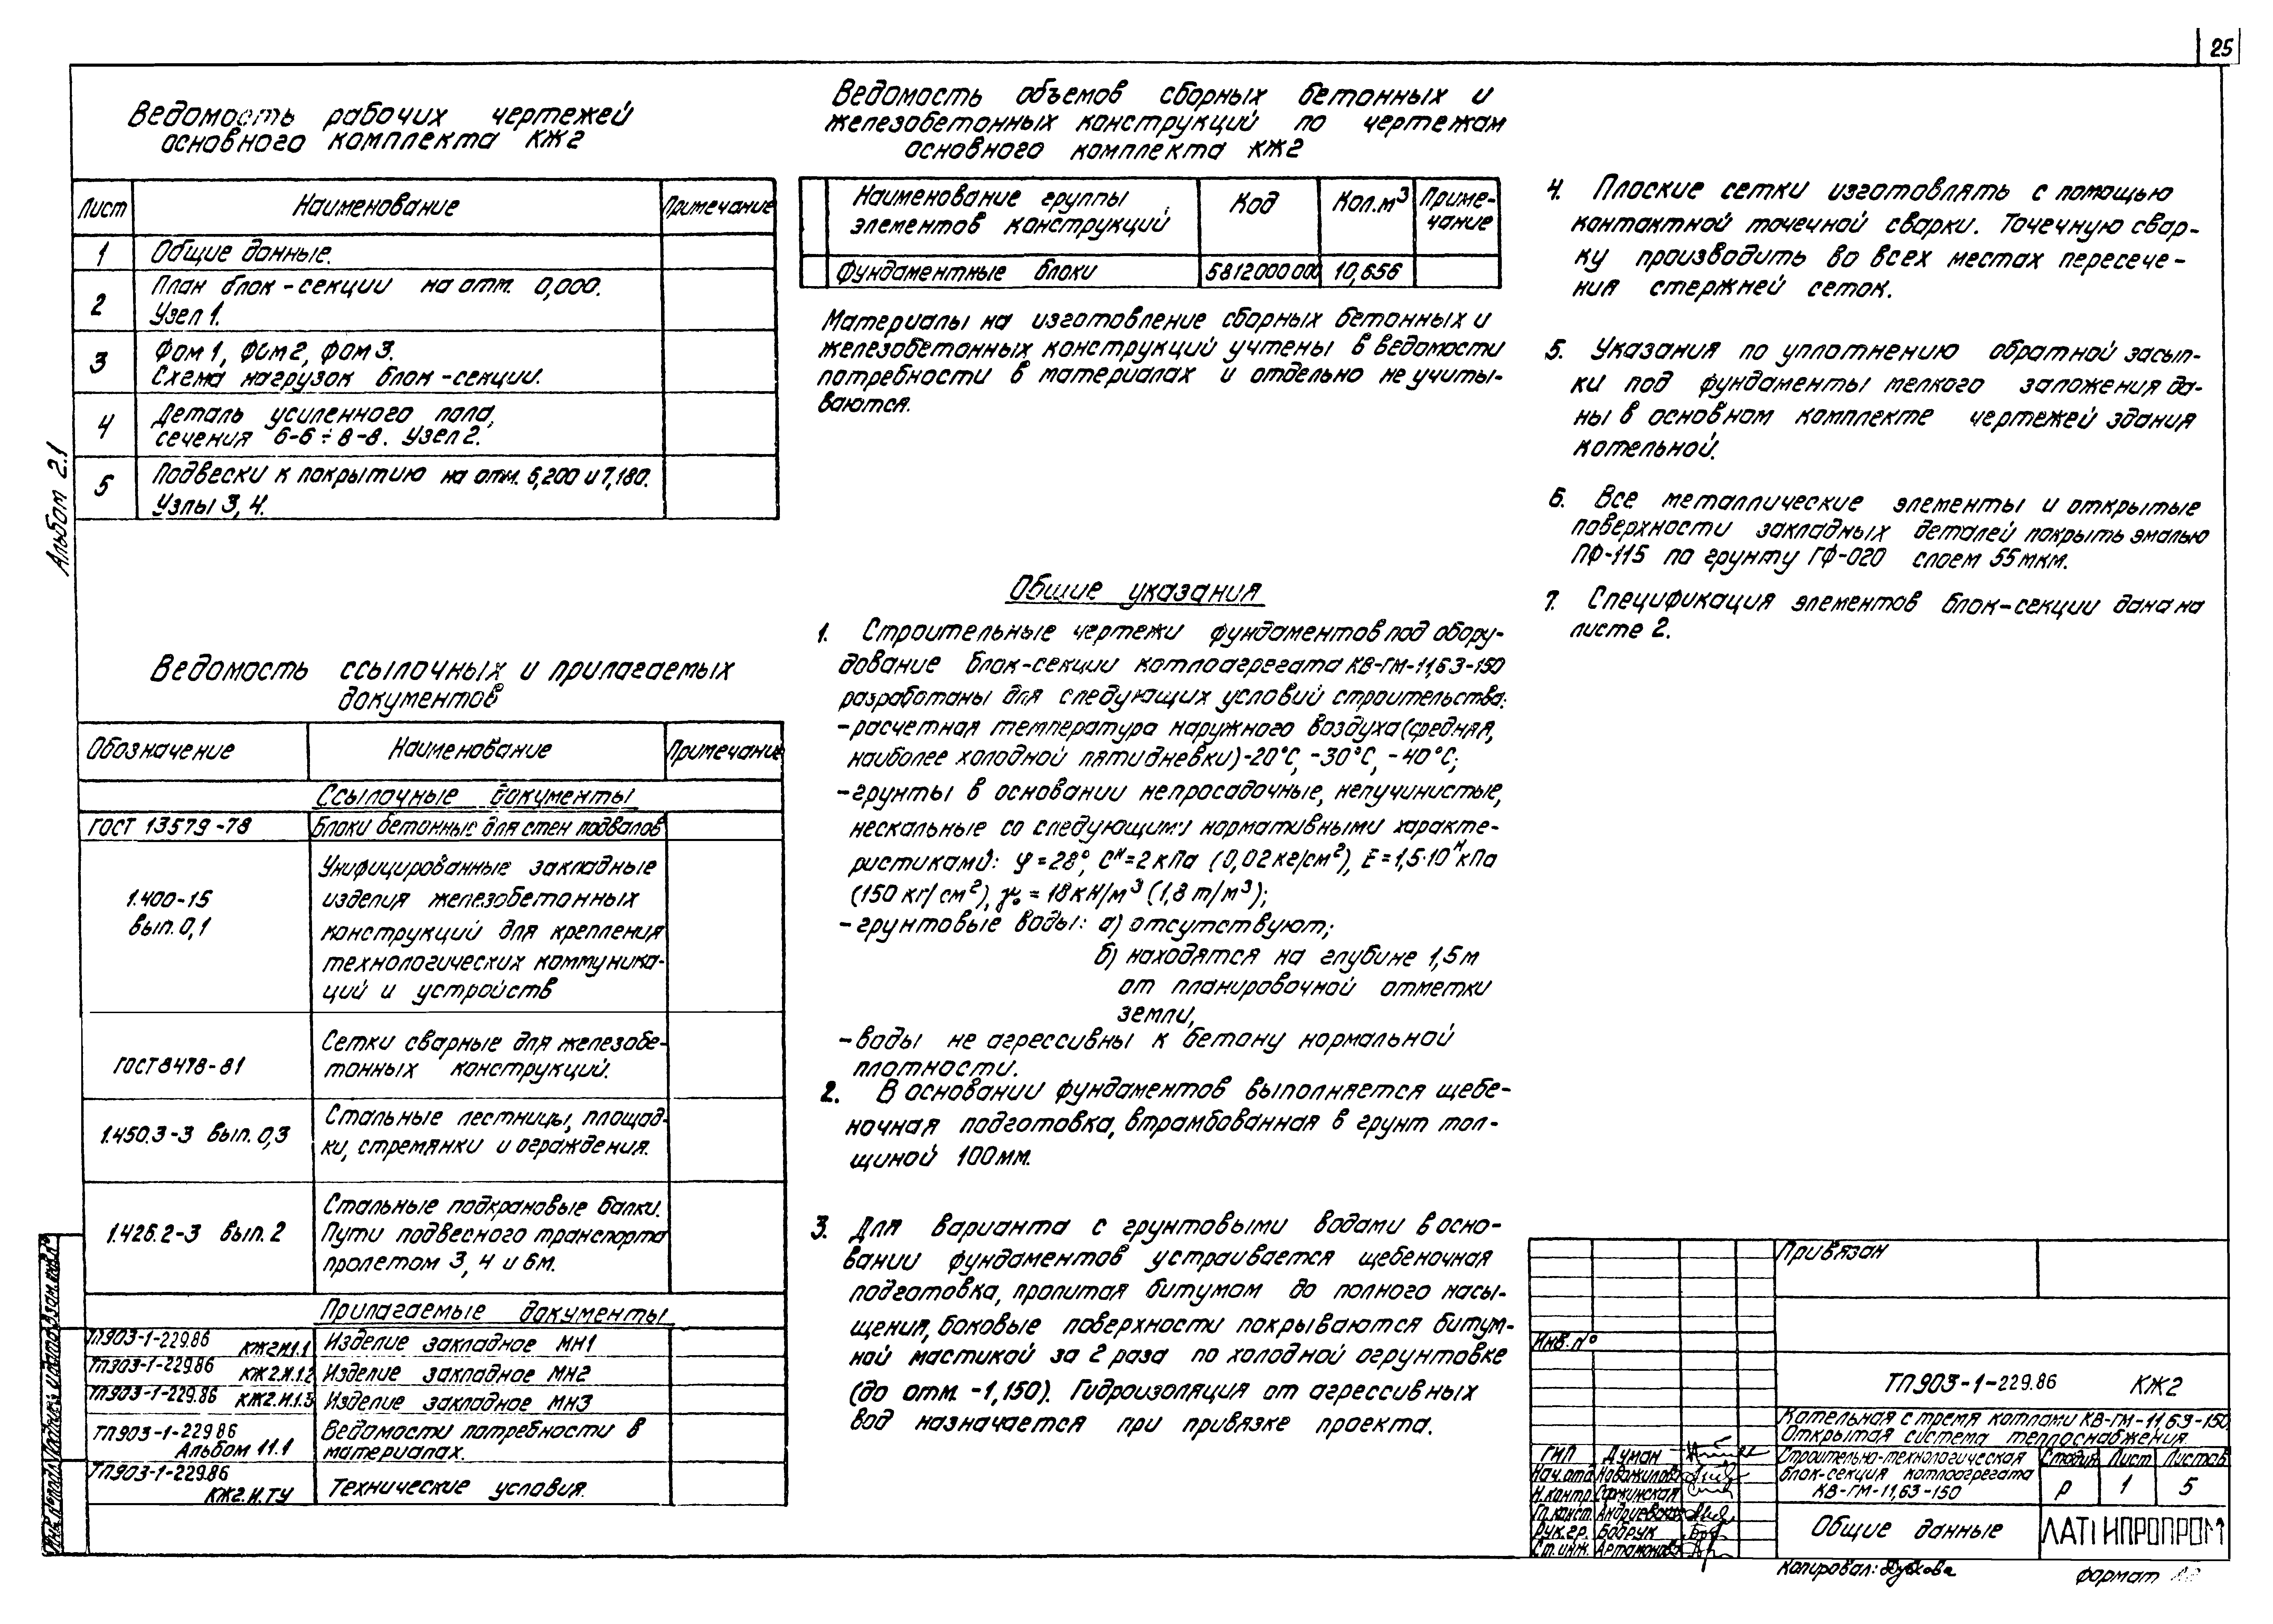 25
Альбом 2.1
Ведомость рабочих чертежей
основного комплекта КЖ2
Лист Наименование Примечание
1 Общие данные.
2 План блок-секции на отм. 0,000.
Узел 1.
3 Фом 1, Фом 2, Фом 3.
Схема нагрузок блок-секции.
4 Деталь усиленного пола,
сечения 6-6÷8-8. Узел 2.
5 Подвески к покрытию на отм. 6,200 и 7,180.
Узлы 3, 4.
Ведомость ссылочных и прилагаемых
документов
Обозначение Наименование Примечание
Ссылочные документы
ГОСТ 13579-78 Блоки бетонные для стен подвалов
1.400-15
вып. 0,1
Унифицированные закладные
изделия железобетонных
конструкций для крепления
технологических коммуника-
ций и устройств
ГОСТ 8478-81
Сетки сварные для железобе-
тонных конструкций.
1.450.3-3 вып. 0,3
Стальные лестницы, площад-
ки, стремянки и ограждения.
1.426.2-3 вып. 2
Стальные подкрановые балки.
Пути подвесного транспорта
пролетом 3, 4 и 6м.
Прилагаемые документы
ТП903-1-229.86 КЖ2.И.1.1 Изделие закладное МН1
ТП903-1-229.86 КЖ2.И.1.2 Изделие закладное МН2
ТП903-1-229.86 КЖ2.И.1.3 Изделие закладное МН3
ТП903-1-229.86
Альбом 11.1
Ведомости потребности в
материалах.
ТП903-1-229.86
КЖ2.И.ТУ
Технические условия.
Ведомость объемов сборных бетонных и
железобетонных конструкций по чертежам
основного комплекта КЖ2
Наименование группы
элементов конструкций
Код Кол.м³ Приме-
чание
Фундаментные блоки 5812000000 10,656
Материалы на изготовление сборных бетонных и
железобетонных конструкций учтены в ведомости
потребности в материалах и отдельно не учиты-
ваются.
Общие указания
1. Строительные чертежи фундаментов под обору-
дование блок-секции котлоагрегата КВ-ГМ-11,63-150
разработаны для следующих условий строительства:
-расчетная температура наружного воздуха (средняя,
наиболее холодной пятидневки) -20°С, -30°С, -40°С;
-грунты в основании непросадочные, непучинистые,
нескальные со следующими нормативными характе-
ристиками: φ=28°, Сᴴ=2кПа (0,02кг/см²), Е=1,5·10⁴кПа
(150 кг/см²), γ₀=18кН/м³ (1,8 т/м³);
-грунтовые воды: а) отсутствуют;
б) находятся на глубине 1,5м
от планировочной отметки
земли,
-воды не агрессивны к бетону нормальной
плотности.
2. В основании фундаментов выполняется щебе-
ночная подготовка, втрамбованная в грунт тол-
щиной 100мм.
3. Для варианта с грунтовыми водами в осно-
вании фундаментов устраивается щебеночная
подготовка, пропитая битумом до полного насы-
щения, боковые поверхности покрываются битум-
ной мастикой за 2 раза по холодной огрунтовке
(до отм. -1,150). Гидроизоляция от агрессивных
вод назначается при привязке проекта.
4. Плоские сетки изготовлять с помощью
контактной точечной сварки. Точечную свар-
ку производить во всех местах пересече-
ния стержней сеток.
5. Указания по уплотнению обратной засып-
ки под фундаменты мелкого заложения да-
ны в основном комплекте чертежей здания
котельной.
6. Все металлические элементы и открытые
поверхности закладных деталей покрыть эмалью
ПФ-115 по грунту ГФ-020 слоем 55мкм.
7. Спецификация элементов блок-секции дана на
листе 2.
Привязан
Инв. №
ТП903-1-229.86 КЖ2
Котельная с тремя котлами КВ-ГМ-11,63-150.
Открытая система теплоснабжения.
ГИП Думан
Нач.отд. Новожилова
Н.контр. Соржинская
Гл.конст. Андриевская
Рук.гр. Бодрук
Ст.инж. Артамонова
Строительно-технологическая
блок-секция котлоагрегата
КВ-ГМ-11,63-150
Стадия Лист Листов
Р 1 5
Общие данные
ЛАТГИПРОПРОМ
Копировал: Дубкова
Формат